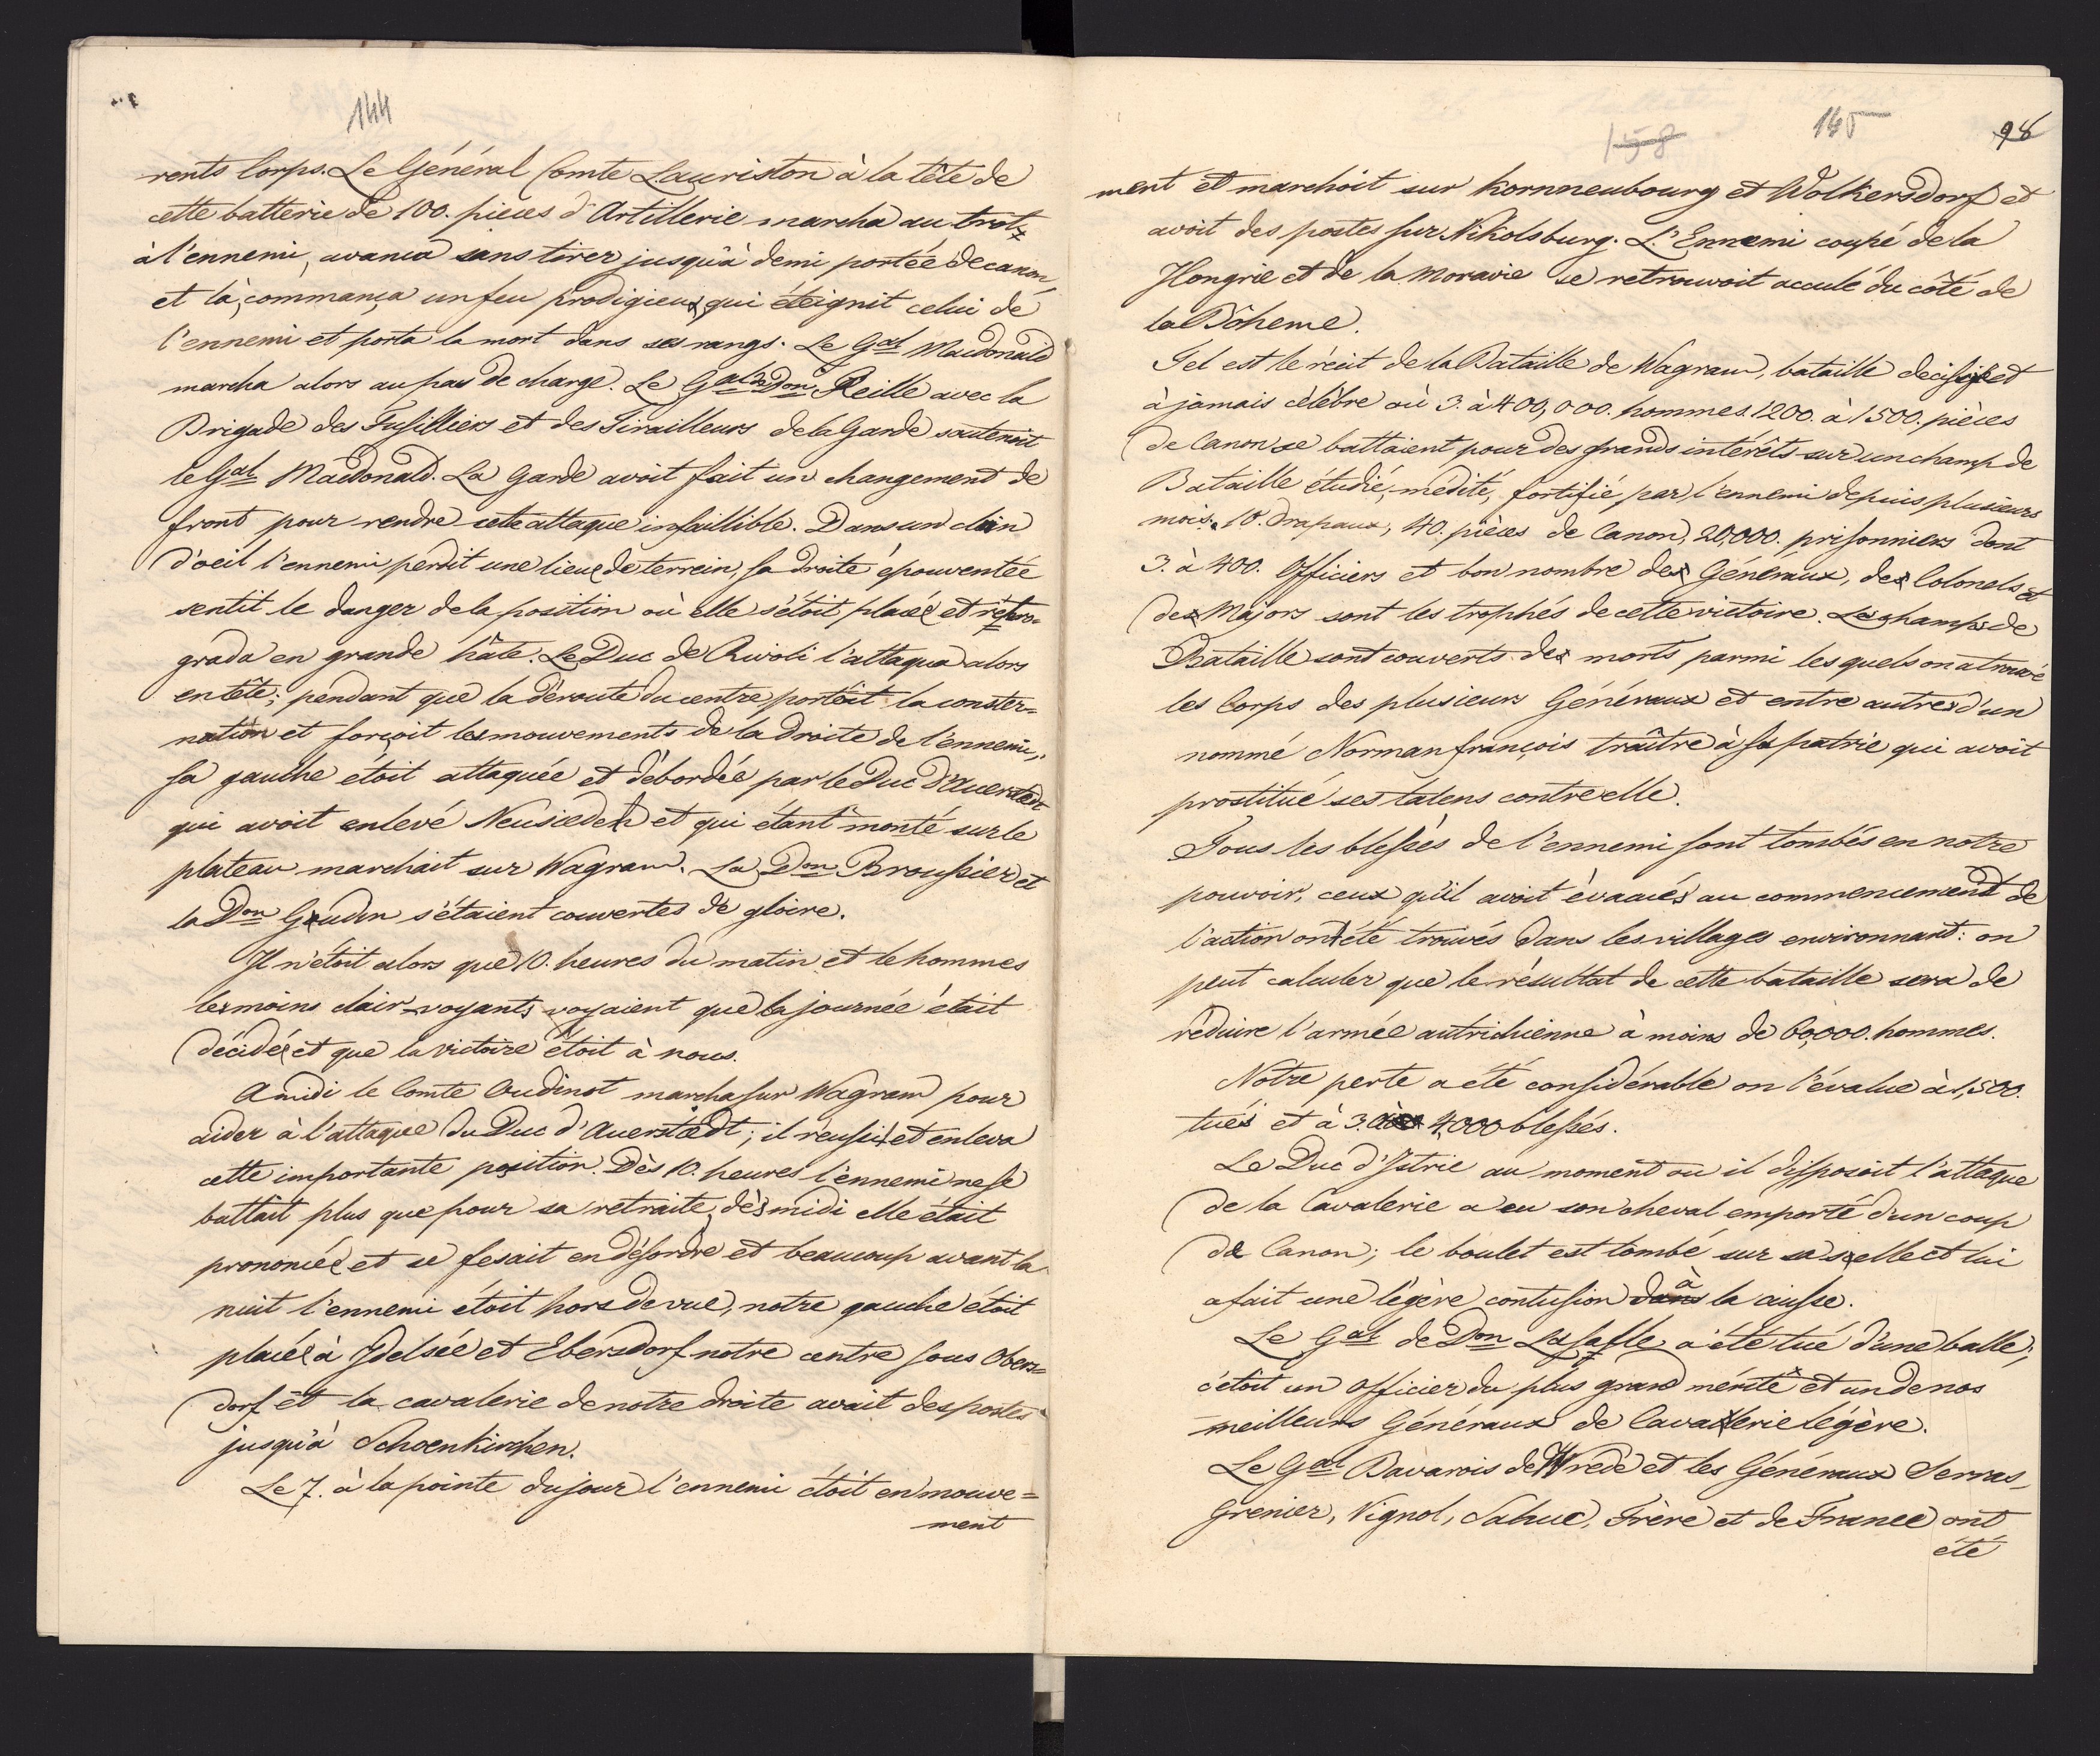 144
rents Corps. Le Général Comte Lauriston à la tête de
cette batterie de 100. pieces d'Artillerie marcha au trot
à l'ennemi, avança sans tirer jusqu'à demi portée de canon,
et là, commança un feu prodigieux qui éteignit celui de
l'ennemi et porta la mort dans ses rangs. Le Gal Macdonald
marcha alors au pas de charge. Le Gal de Don Reille avec la
Brigade des Fusilliers et des Tirailleurs de la Garde soutenoit
le Gal Macdonald. La Garde avoit fait un changement de
front pour rendre cette attaque infaillible. Dans un clin
d'oeil l'ennemi perdit une lieue de terrein, sa droite épouventée
sentit le danger de la position où elle s'étoit placée et rétro=
grada en grande hâte. Le Duc de Rivoli l'attaqua alors
en tête; pendant que la déroute du centre portoit la conster=
nation et forçoit les mouvements de la droite de l'ennemi,
sa gauche étoit attaquée et débordée par le Duc d'Auerstedt
qui avoit enlevé Neusiedel et qui étant monté sur le
plateau marchait sur Wagram. La Don Broussier et
la Don Gudin s'étaient couvertes de gloire.
Il n'étoit alors que 10. heures du matin et le hommes
les moins clair-voyants voyaient que la journée était
décidée et que la victoire étoit à nous.
A midi le Comte Oudinot marcha sur Wagram pour
aider à l'attaque du Duc d'Auerstaedt; il réussit et enleva
cette importante position. Dès 10. heures l'ennemi ne se
battait plus que pour sa retraite, dès midi elle était
prononcée et se fesait en désordre et beaucoup avant la
nuit l'ennemi étoit hors de vue, notre gauche étoit
placée à Jdelsée et Ebersdorf notre centre sous Obers=
dorf et la cavalerie de notre droite avait des postes
jusqu'à Schoenkirchen.
Le 7. à la pointe du jour l'ennemi étoit en mouve=
ment
158 145 98
ment et marchoit sur Kornneubourg et Wolkersdorf et
avoit des postes sur Nikolsburg. L'Ennemi coupé de la
Hongrie et de la Moravie se retrouvoit acculé du côté de
la Bôheme.
Tel est le récit de la Bataille de Wagram, bataille decisive et
à jamais célèbre où 3. à 400,000. hommes 1200. à 1500. pièces
de Canon se battaient pour des grands intérêts sur un champ de
Bataille étudié, médité, fortifié par l'ennemi depuis plusieurs
mois. 10. Drapaux, 40. pièces de Canon, 20,000. prisonniers dont
3. à 400. Officiers et bon nombre de Généraux, de Colonels et
de Majors sont les trophés de cette victoire. Les champs de
Bataille sont couverts de morts parmi les quels on a trouvé
les Corps des plusieurs Généraux et entre autres d'un
nommé Norman françois traître à sa patrie qui avoit
prostitué ses talens contre elle.
Tous les blessés de l'ennemi sont tombés en notre
pouvoir, ceux qu'il avoit évacués au commencement de
l'action ont été trouvés dans les villages environnant: on
peut calculer que le résultat de cette bataille sera de
réduire l'armée autrichienne à moins de 60,000. hommes.
Notre perte a été considérable on l'évalue à 1,500.
tués et à 3. à 4,000 blessés.
Le Duc d'Istrie au moment où il disposoit l'attaque
de la Cavalerie a eu son cheval emporté d'un coup
de Canon; le boulet est tombé sur sa selle et lui
a fait une légère contusion dans à la cuisse.
Le Gal de Don Lasalle a été tué d'une balle;
c'étoit un Officier du plus grand mérite et un de nos
meilleurs Généraux de Cavalerie légère.
Le Gal Bavarois de Wrede et les Généraux Serras,
Grenier, Vignol, Sahuc, Frère et de France ont
été